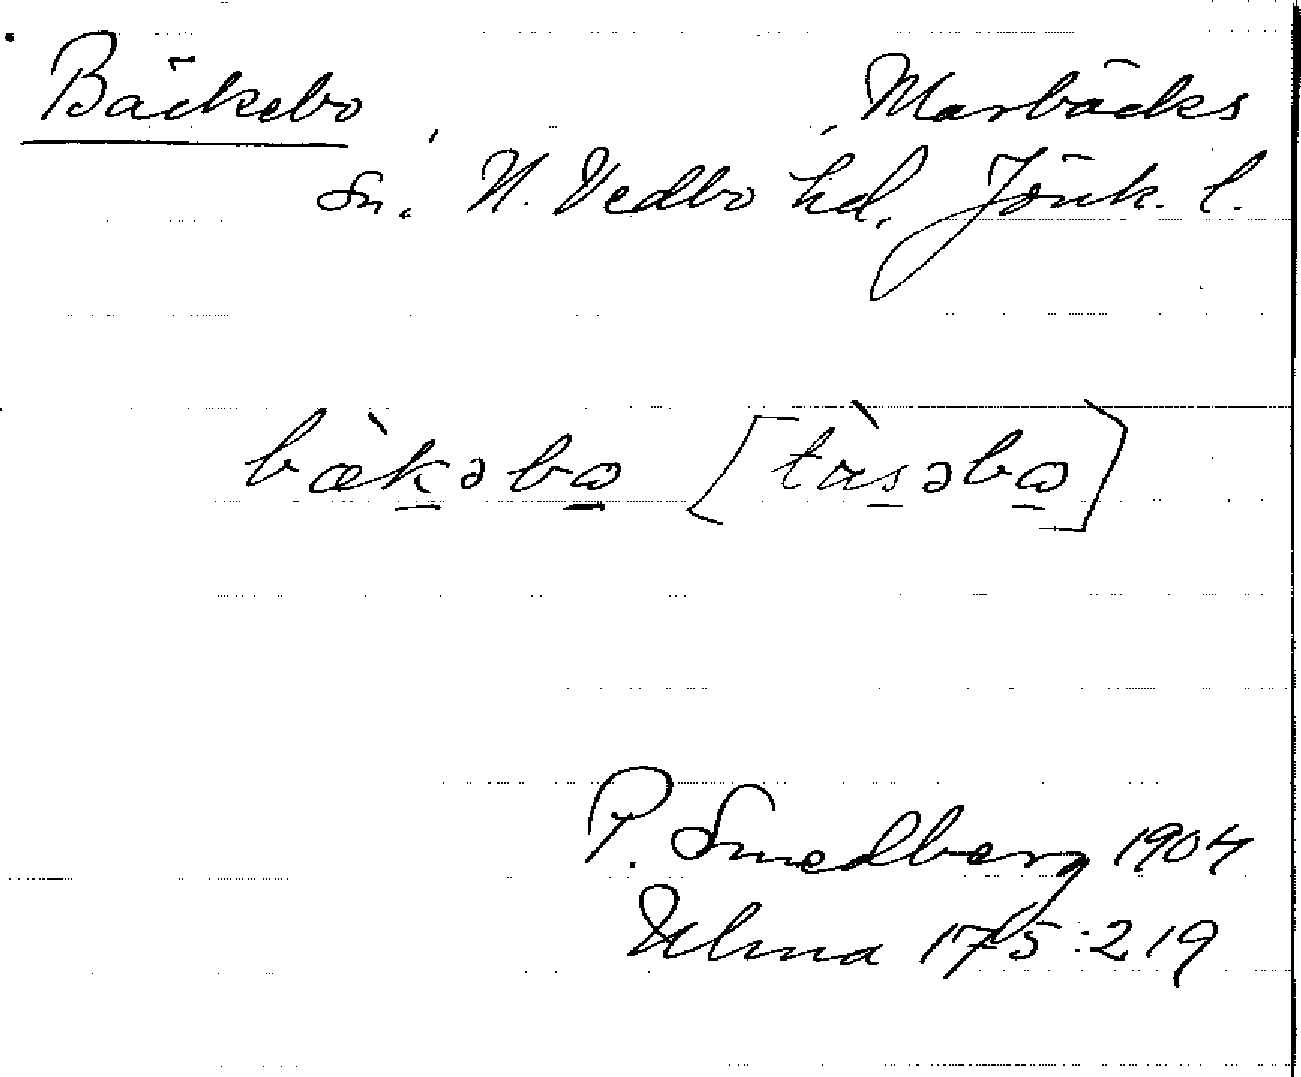 Bäckebo Marbäcks
sn. N. Vedbo hd. Jönk. l.
bæ̀k̲əbo̲ [tɑ̀s̲əbo̲]
P. Smedberg 1904
Ulma 175:219